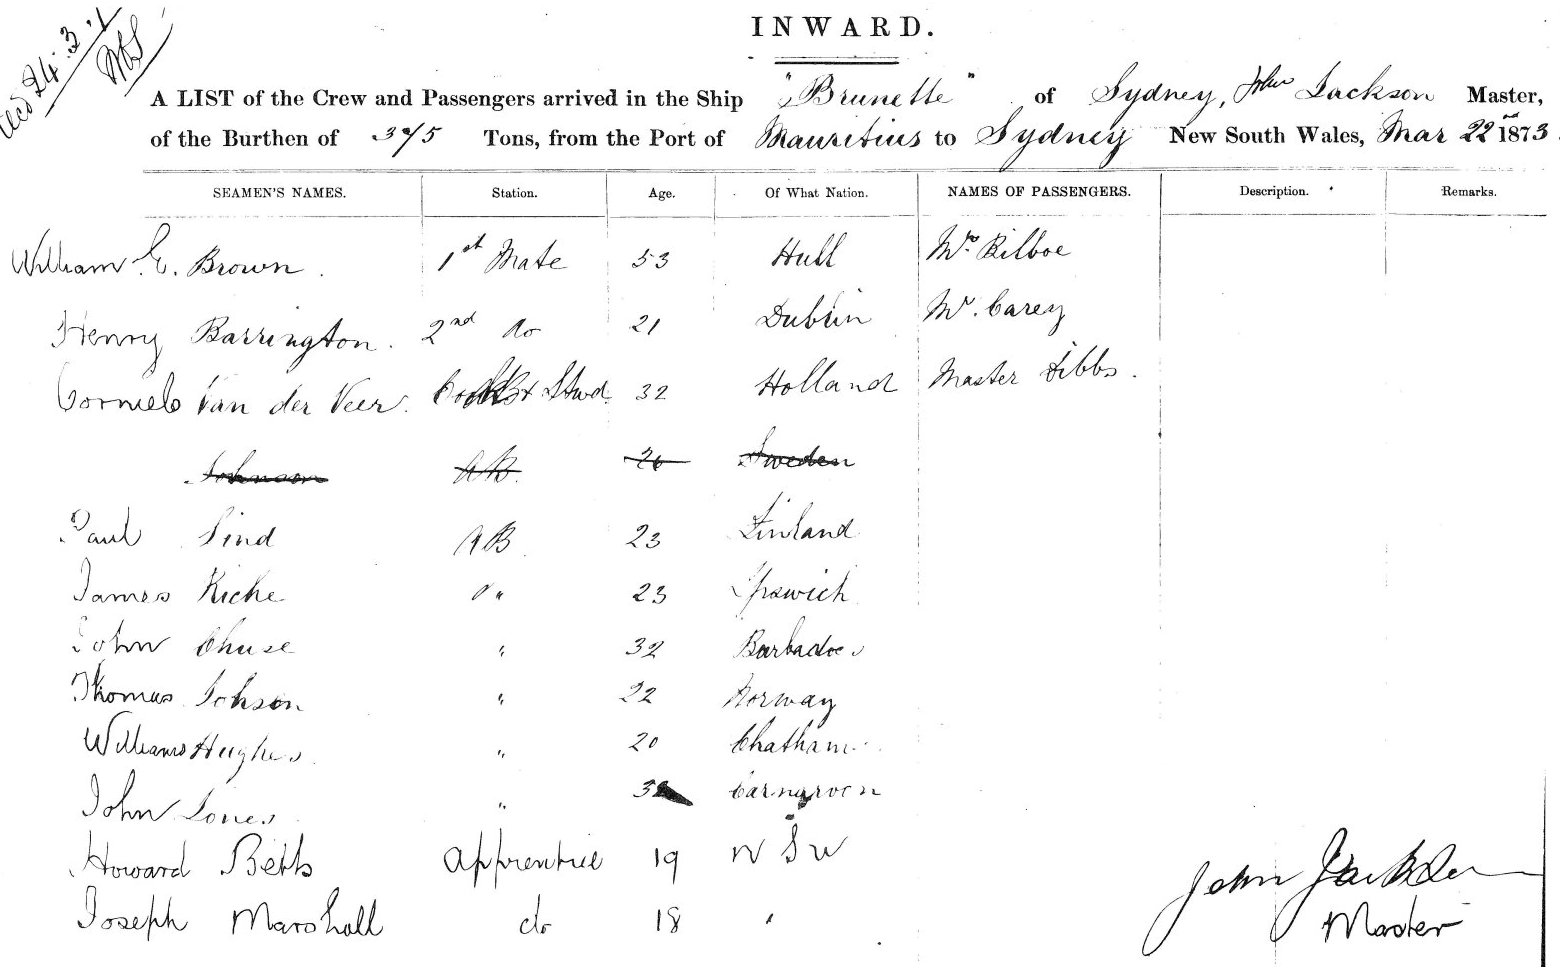 24.3.
INWARD.
A LIST of the Crew and Passengers arrived in the Ship "Brunette" of Sydney, John Jackson Master,
of the Burthen of Tons, from the Port of Mauritius to Sydney New South Wales, Mar 22nd 1873.
SEAMEN'S NAMES. Station. Age. Of What Nation. NAMES OF PASSENGERS. Description. Remarks.
William E. Brown. 1st Mate 53 Hull Bilboe
Henry Barrington. 2nd do 21 Dublin Mr. Carey
Van der Veer. Stwd. 32 Holland Master Dibbs.
Johnson AB 26 Sweden
Paul Lind AB. 23 Finland
James 23 Ipswich
John Chuse " 32 Barbadoes
Thomas Johson " 22 Norway
Williams Hughes. " 20 Chatham
John Jones. " Carnarvon
Howard Betts apprentice 19 N S W
Joseph Marshall do 18 "
John Jackson
Master